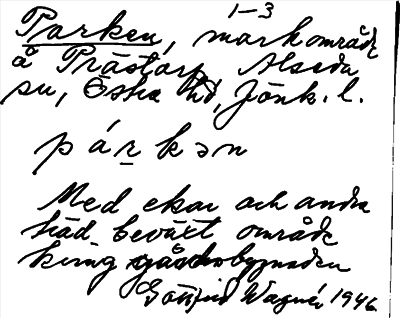 1-3
Parken, markområde
å Prästarp Alseda
sn, Östra hd, Jönk. l.
párkən
Med ekar och andra
träd beväxt område
kring gårdsbyggnaden
Gottfrid Wagnér 1946.